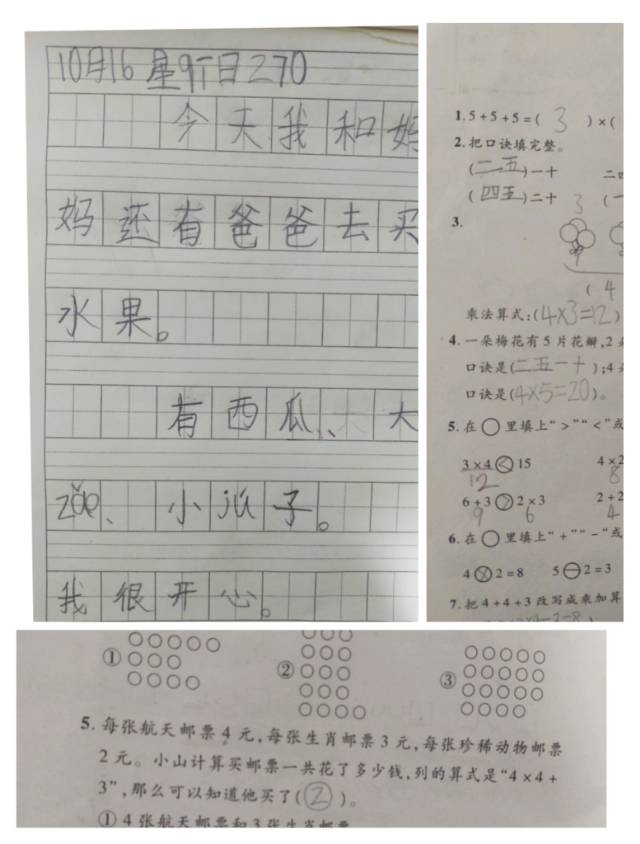 10月16 星期日270
今天我和妈
妈还有爸爸去买
水果。
有西瓜、大
zǎo、小jú子。
我很开心。
1. 5+5+5=( 3 )×(
2. 把口诀填完整。
(二五)一十 二四
(四五)二十 (一
3. 3
( 4
乘法算式:(4×3=12)
4. 一朵梅花有5片花瓣,2
口诀是(二五一十);4
口诀是(4×5=20)。
5. 在○里填上“>”“<”或
3×4<15 4×2
12 8
6+3>2×3 2+2
9 6 4
6. 在○里填上“+”“-”或
4×2=8 5-2=3
7. 把4+4+3改写成乘加算
① ② ③
5. 每张航天邮票4元,每张生肖邮票3元,每张珍稀动物邮票
2元。小山计算买邮票一共花了多少钱,列的算式是“4×4+
3”,那么可以知道他买了( ② )。
① 4张航天邮票和3张生肖邮票